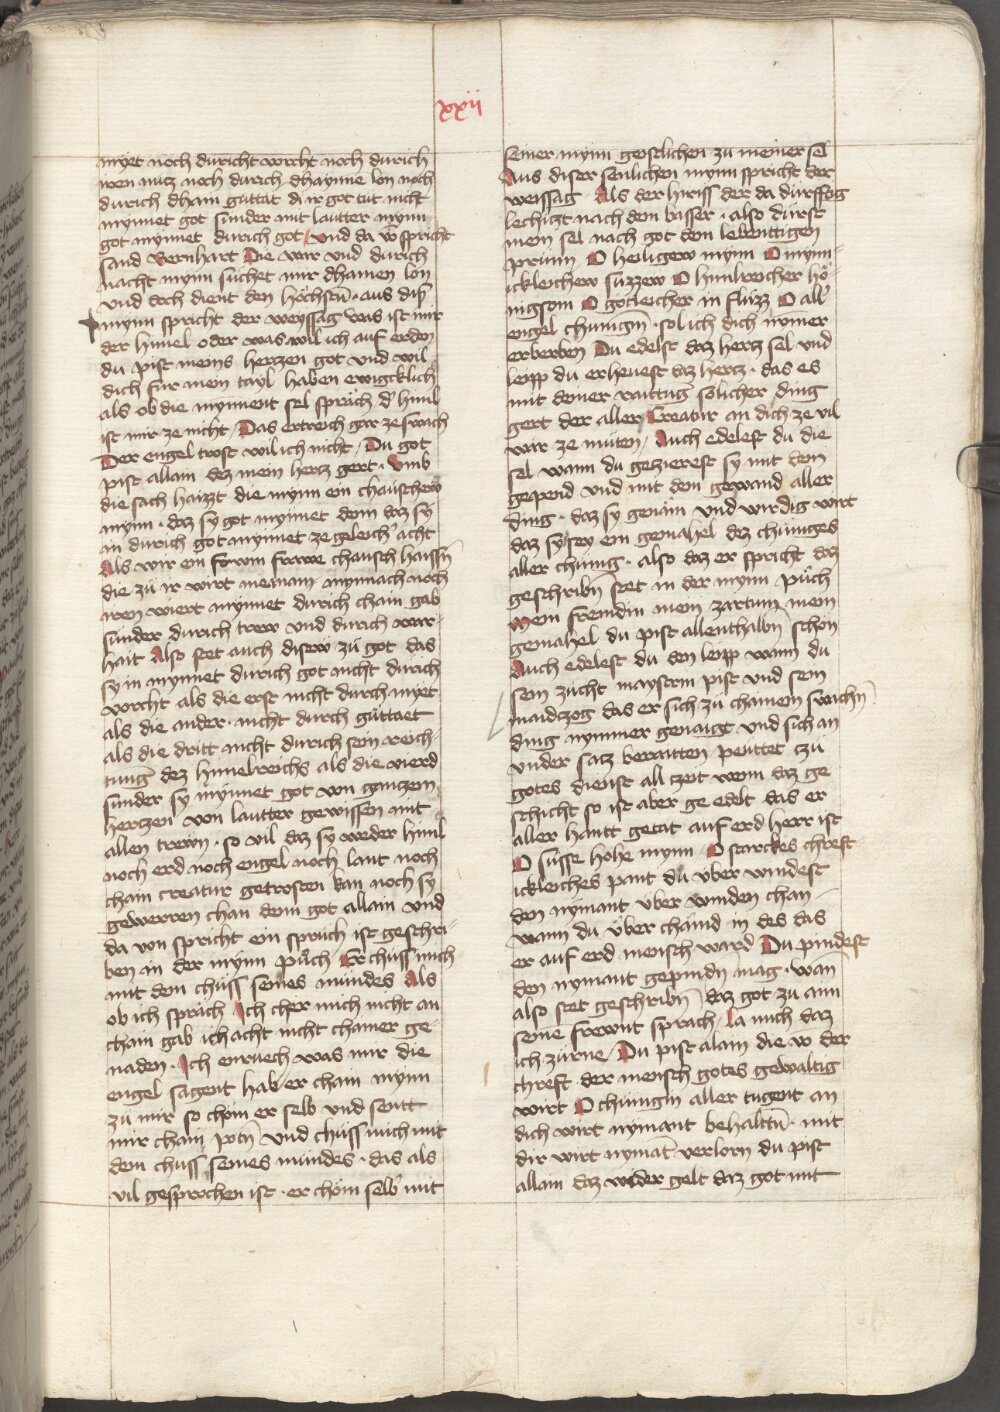 xxij
myet noch durich vorcht noch durich
iren nutz noch durich dhayme lon noch
durich dham guttat di ir got tut nicht
mynnet got sunder mit lautter mynn
got mynnet durich got / vnd da vo spricht
sand Bernhart Die war vnd durich
nacht mynn suchet mir dhainen lon
vnd doch dient den höchstn · aus diser
mynn spricht der weyssag was ist mir
der himel oder was wil ich auf erden
du pist meins hertzen got vnd wil
dich für mein tayl haben ewigcklich
als ob die mynnent sel spräch d' himl
ist mir ze nicht / Das ertreich gar ze swach
Der engel trost wil ich nicht / Du got
pist allain dez mein hertz gert · Vmb
die sach haizzt die mynn ein chäuschew
mynn · daz sy got mynnet denn daz sy
in durich got mynnet ze geleicher acht
Als wir ein frwm frawe chausch haissn
die zu ir wirt mernam mynnach noch
iren wiert mynnet durich chain gab
sunder durich trew vnd durich war-
hait Also stet auch disew zü got das
sy in mynnet durich got nicht durich
vorcht als die erst nicht durch myet
als die ander · nicht durch güttaet
als die dritt nicht durich sein reich-
tung dez himelreichs als die vierd
sunder sy mynnet got von gantzem
hertzen von lautter gewissen mit
allen trewn · so vil daz sy weder himl
noch erd noch engel noch laut noch
chain creatur getrosten kan noch sy
gewerren chan denn got allain vnd
da von spricht ein spruch ist geschri-
ben in der mynn püch Er chuss mich
mit dem chuss seines mundes Als
ob ich spräch Ich cher mich nicht an
chain gab ich acht nicht chainer ge-
naden · Ich enruech was mir die
engel sagent hab er chain mynn
zu mir so chöm er selb vnd sentt
mir chain potn vnd chuss mich mit
dem chuss seines mundes · das als
vil gesprochen ist · er chöm selb mit
seiner mynn geistlichen zu meiner sel
Aus diser senlichen mynn spricht der
weissag Als der hiriss der da durffög
lechitzt nach dem wasser · also dürst
mein sel nach got dem lebenttigen
prunn O heiligew mynn O mynn-
ickleichew süzzew O himlreicher hö-
nigsom O götleicher in fluzz O all'
engel chunign · sol ich dich nymer
erberben Du edelst daz hertz sel vnd
leipp du erheuest daz hertz · das es
mit deiner raittung sölicher ding
gert der aller Creatur an dich ze vil
wär ze muten / Auch edelest du die
sel wann du gezierest sy mit dem
gepend vnd mit dem gewand aller
ding · daz sy genäm vnd wirdig wirt
daz sy sey ein gemahel dez chüniges
aller chünig · also daz er spricht daz
geschribn stet in der mynn püch
Mein freundin mein zartum mein
gemahel du pist allenthalbn schön
Auch edelest du den leipp wann du
sein zucht maystrin pist vnd sein
maidzog das er sich zu chainem swachn
ding nymmer genaigt vnd sich an
vnder satz berautten peuttet zu
gotes dienst all zeit wenn daz ge
schicht so ist aber ge edelt das er
aller hantt getat auf erd herr ist
O susse hohe mynn · O starckes chreft
ickleiches pant du über windest
den nymant über winden chan
wann du über chämd in des das
er auf erd mensch ward Du pindest
den nymant gepindn mag · wan
also stet geschribn daz got zu aim
seine frewnt sprach · La mich daz
ich zürne / Du pist alain die vo der
chreft der mensch gotes gewaltig
wirt O chunigin aller tugent an
dich wirt nymant behaltn · mit
dir wirt nymat verlorn du pist
allain daz wider gelt daz got mit